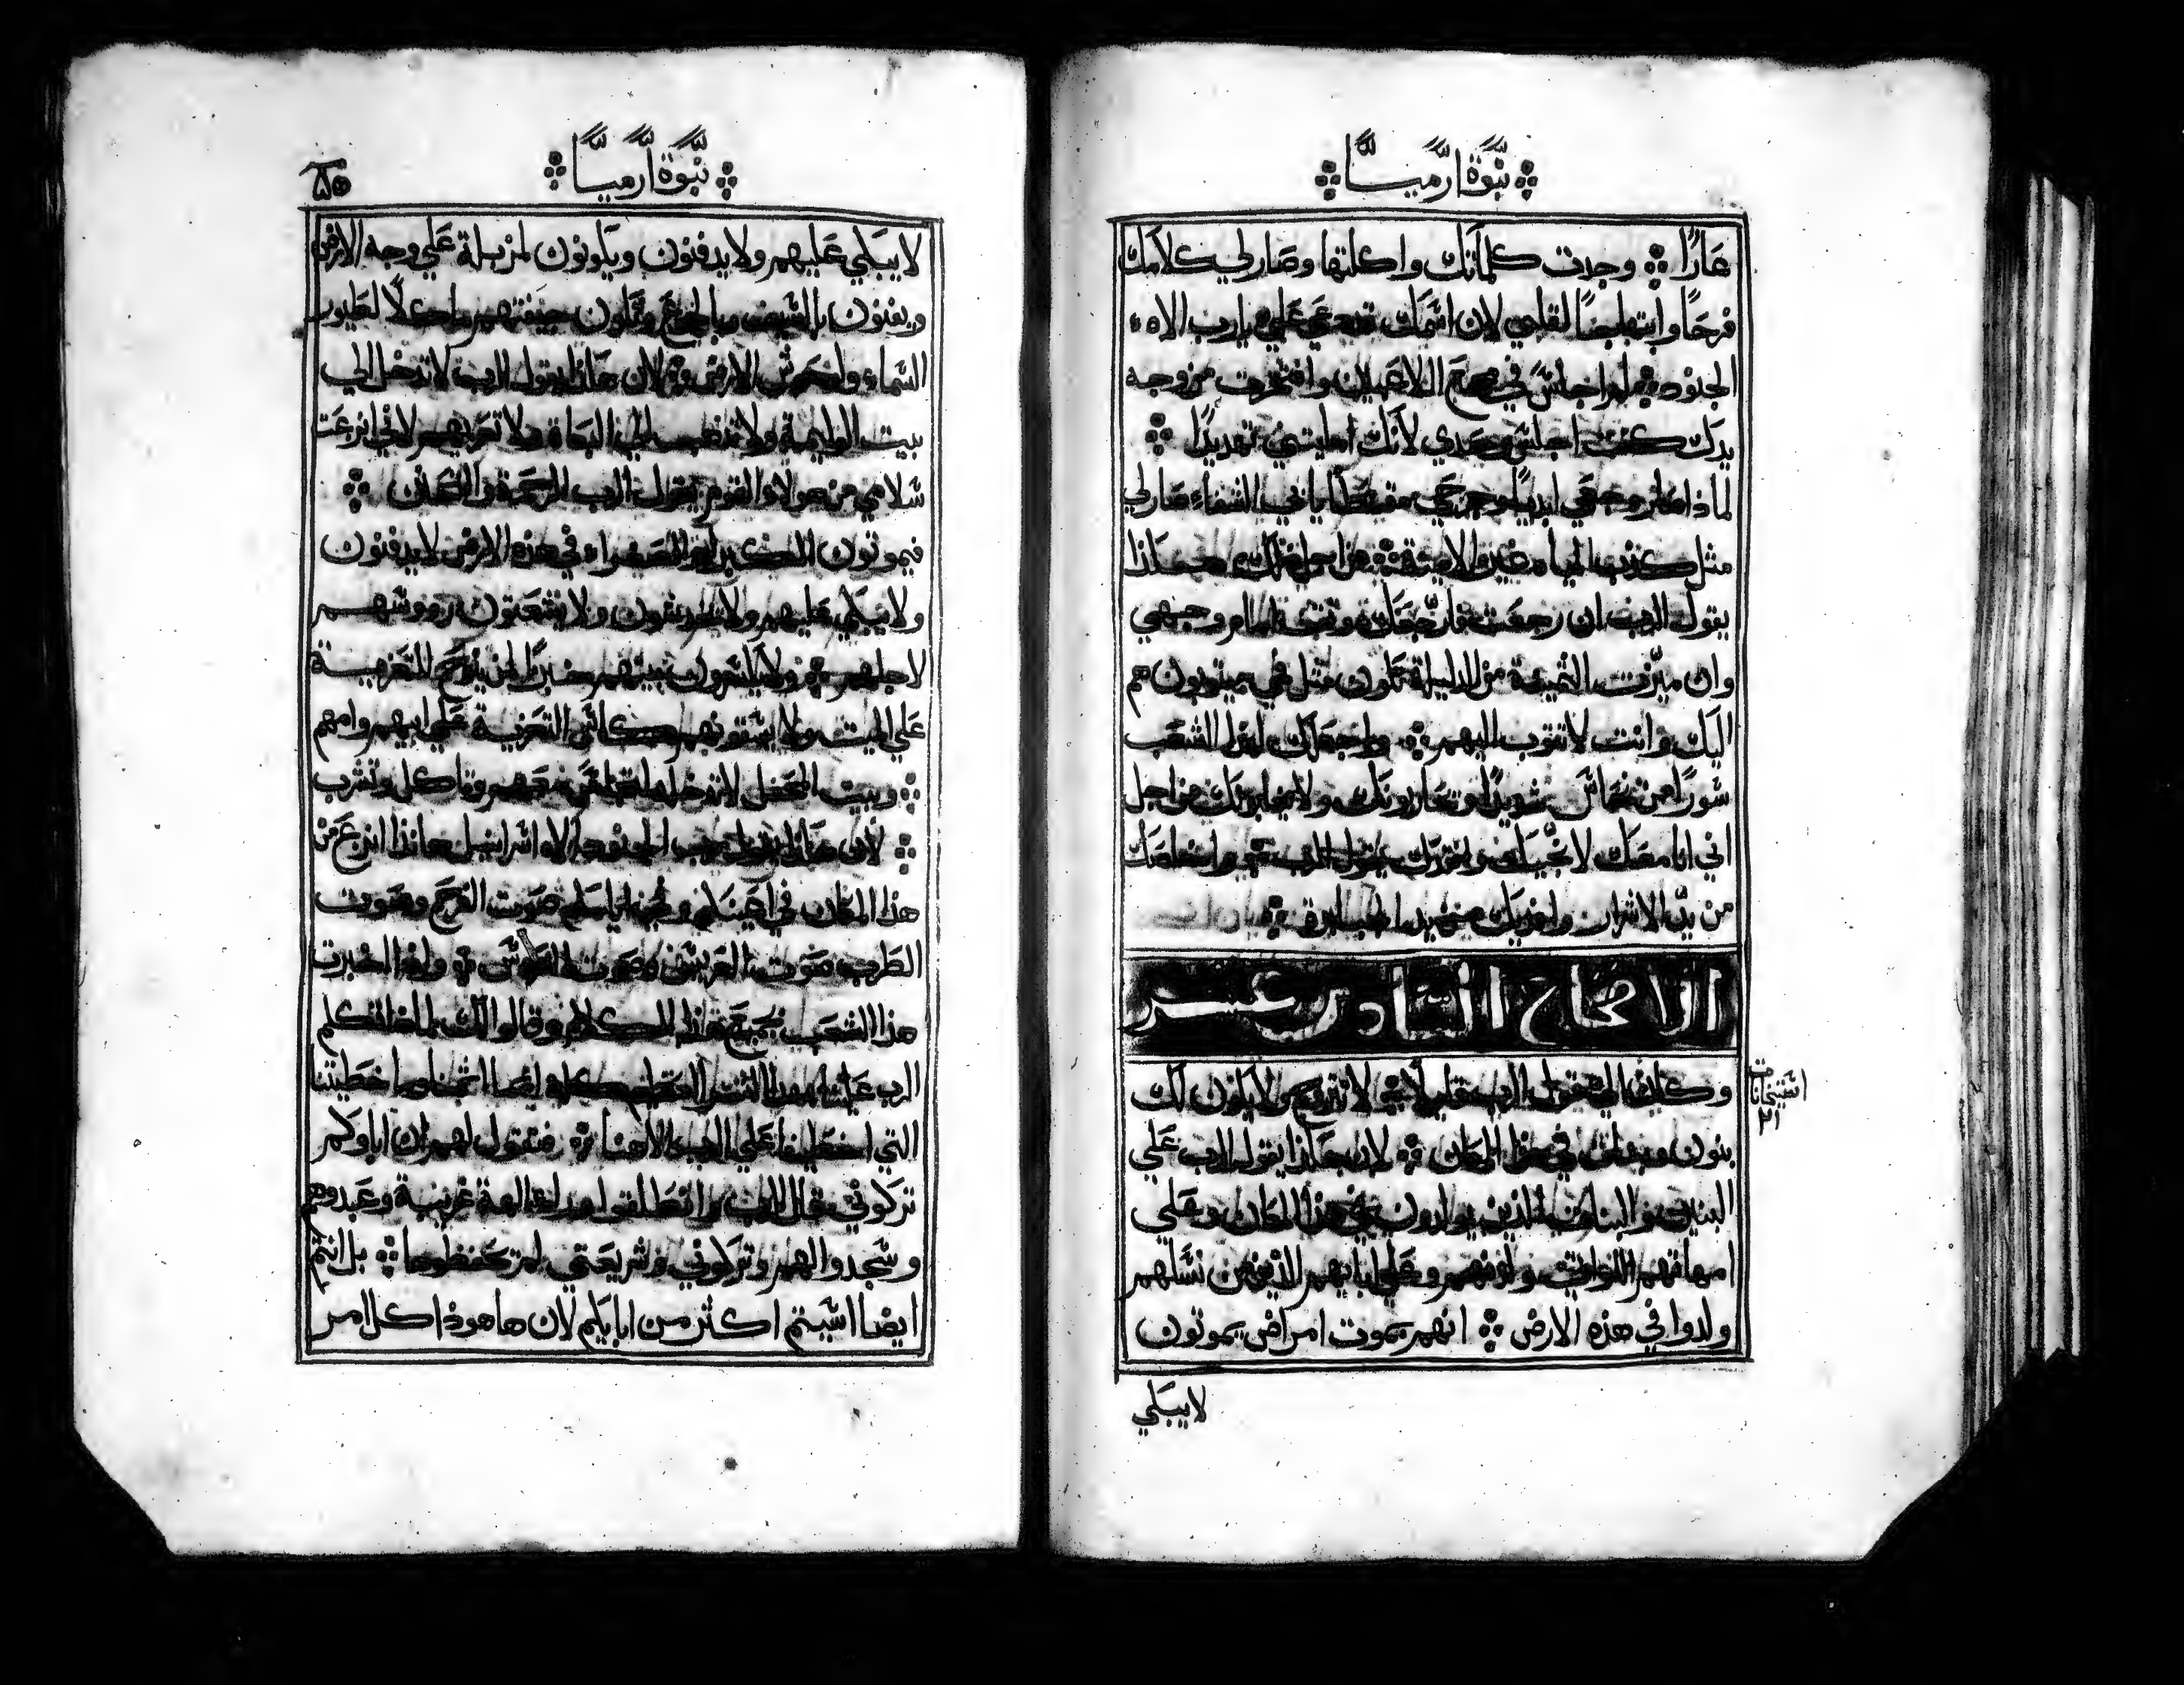 نبوة ارميا
عارًا وجدت كلماتك واكلتها وصار لي كلامك
فرحًا وابتهاجًا لقلبي لان اسمك علي يا رب الاه
الجنود لم اجلس في مجمع اللاعبين وافتخرت من وجه
يدك كنت اجلس وحدي لانك امليتني تهديدًا
لماذا صار وجعي ابديًا وجرحي يابي الشفاء صار لي
مثل كذب المياه الامينة من اجل ذلك هكذا
يقول الرب ان رجعت وتقف امام وجهي
وان ميزت الثمينة من الذليلة تكون مثل فمي يتوبون هم
اليك وانت لا تتوب اليهم واجعلك لهذا الشعب
سورًا من نحاس شديدًا ويحاربونك ولا من اجل
اني انا معك لانجيك يقول الرب واخلصك
من يد الاشرار وافديك من يد
الاصحاح السادس عشر
وكان الي قول الرب قايلًا لا تتزوج ولا يكون لك
بنون وبنات في هذا المكان لان هكذا يقول الرب علي
البنين والبنات الذين يولدون في هذا المكان وعلي
امهاتهم اللواتي ولدنهم وعلي ابايهم الذين من نسلهم
ولدوا في هذه الارض انهم بموت امراض يموتون
لا يبكي
نبوة ارميا
لا يبكي عليهم ولا يدفنون ويكونون لمزبلة علي وجه الارض
ويفنون بالسيف وبالجوع وتكون جيفتهم ماكلًا لطيور
السماء ولوحوش الارض لان هكذا يقول الرب لا تدخل الي
بيت الوليمة ولا تذهب الي البكاة ولا تعزيهم لاني نزعت
سلامي من هولاء القوم يقول الرب الرحمة
فيموتون الكبراء والصغراء في هذه الارض لا يدفنون
ولا يبكي عليهم ولا ولا رووسهم
لاجلهم ولا بينهم خبزًا التعزية
علي الميت ولا يسقونهم كاس التعزية علي ابيهم وامهم
وبيت المحفل لا تدخل لتجلس معهم وتاكل وتشرب
لان هكذا يقول رب الجنود الاه اسراييل هانذا انزع من
هذا المكان في اعينكم وفي ايامكم صوت الفرح وصوت
الطرب صوت العريس وصوت العروس واذا اخبرت
هذا الشعب بجميع هذا الكلام وقالوا لك لماذا تكلم
الرب علينا بهذا الشر العظيم كله ايما اثمنا وما خطيتنا
التي اخطينا علي الرب الاهنا فتقول لهم ان اباوكم
تركوني يقال الرب وانطلقوا ورا الهة غريبة وعبدوهم
وسجدوا لهم وتركوني وشريعتي لم تحفظوها بل انتم
ايضا اسيتم اكثر من ابايكم لان ها هوذا كل امر